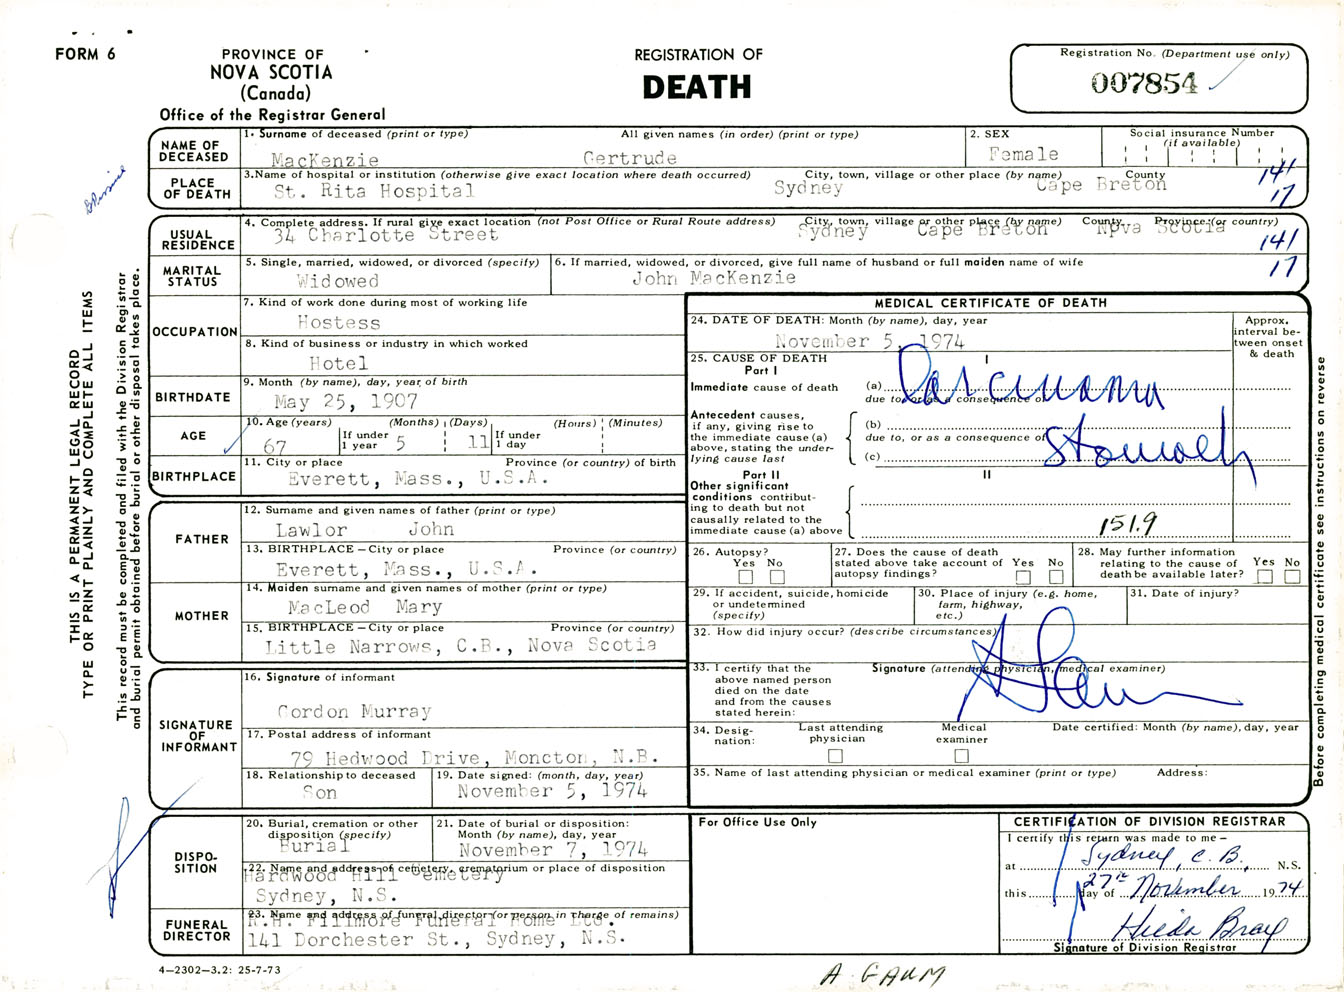 FORM 6
PROVINCE OF
NOVA SCOTIA
(Canada)
Office of the Registrar General
REGISTRATION OF
DEATH
Registration No. (Department use only)
007854
NAME OF DECEASED
1. Surname of deceased (print or type) All given names (in order) (print or type)
MacKenzie Gertrude
2. SEX
Female
Social insurance Number (if available)
PLACE OF DEATH
3. Name of hospital or institution (otherwise give exact location where death occurred) City, town, village or other place (by name) County
St. Rita Hospital Sydney Cape Breton
141
17
USUAL RESIDENCE
4. Complete address. If rural give exact location (not Post Office or Rural Route address) City, town, village or other place (by name) County Province (or country)
34 Charlotte Street Sydney Cape Breton Nova Scotia
141
17
MARITAL STATUS
5. Single, married, widowed, or divorced (specify)
Widowed
6. If married, widowed, or divorced, give full name of husband or full maiden name of wife
John MacKenzie
OCCUPATION
7. Kind of work done during most of working life
Hostess
8. Kind of business or industry in which worked
Hotel
BIRTHDATE
9. Month (by name), day, year, of birth
May 25, 1907
AGE
10. Age (years) (Months) (Days) (Hours) (Minutes)
67 If under 1 year 5 11 If under 1 day
BIRTHPLACE
11. City or place Province (or country) of birth
Everett, Mass., U.S.A.
FATHER
12. Surname and given names of father (print or type)
Lawlor John
13. BIRTHPLACE – City or place Province (or country)
Everett, Mass., U.S.A.
MOTHER
14. Maiden surname and given names of mother (print or type)
MacLeod Mary
15. BIRTHPLACE – City or place Province (or country)
Little Narrows, C.B., Nova Scotia
SIGNATURE OF INFORMANT
16. Signature of informant
Gordon Murray
17. Postal address of informant
79 Hedwood Drive, Moncton, N.B.
18. Relationship to deceased
Son
19. Date signed: (month, day, year)
November 5, 1974
DISPO-
SITION
20. Burial, cremation or other disposition (specify)
Burial
21. Date of burial or disposition: Month (by name), day, year
November 7, 1974
22. Name and address of cemetery, crematorium or place of disposition
Hardwood Hill Cemetery
Sydney, N.S.
FUNERAL DIRECTOR
23. Name and address of funeral director (or person in charge of remains)
Fillmore Funeral Home Ltd.
141 Dorchester St., Sydney, N.S.
4–2302–3.2: 25-7-73
MEDICAL CERTIFICATE OF DEATH
24. DATE OF DEATH: Month (by name), day, year
November 5, 1974
Approx. interval be-
tween onset & death
25. CAUSE OF DEATH
Part I
I
Immediate cause of death
(a) Carcinoma
due to, or as a consequence of
Antecedent causes, if any, giving rise to the immediate cause (a) above, stating the under-
lying cause last
(b)
due to, or as a consequence of
(c) Stomach
Part II
II
Other significant conditions contribut-
ing to death but not causally related to the immediate cause (a) above
151.9
26. Autopsy?
Yes No
27. Does the cause of death stated above take account of autopsy findings?
Yes No
28. May further information relating to the cause of death be available later?
Yes No
29. If accident, suicide, homicide or undetermined (specify)
30. Place of injury (e.g. home, farm, highway, etc.)
31. Date of injury?
32. How did injury occur? (describe circumstances)
33. I certify that the above named person died on the date and from the causes stated herein:
Signature (attending physician, medical examiner)
34. Desig-
nation:
Last attending physician
Medical examiner
Date certified: Month (by name), day, year
35. Name of last attending physician or medical examiner (print or type) Address:
For Office Use Only
CERTIFICATION OF DIVISION REGISTRAR
I certify this return was made to me –
at Sydney, C.B., N.S.
this 27th day of November 1974
Hilda Bray
Signature of Division Registrar
A GAUM
THIS IS A PERMANENT LEGAL RECORD
TYPE OR PRINT PLAINLY AND COMPLETE ALL ITEMS
This record must be completed and filed with the Division Registrar
and burial permit obtained before burial or other disposal takes place.
Before completing medical certificate see instructions on reverse